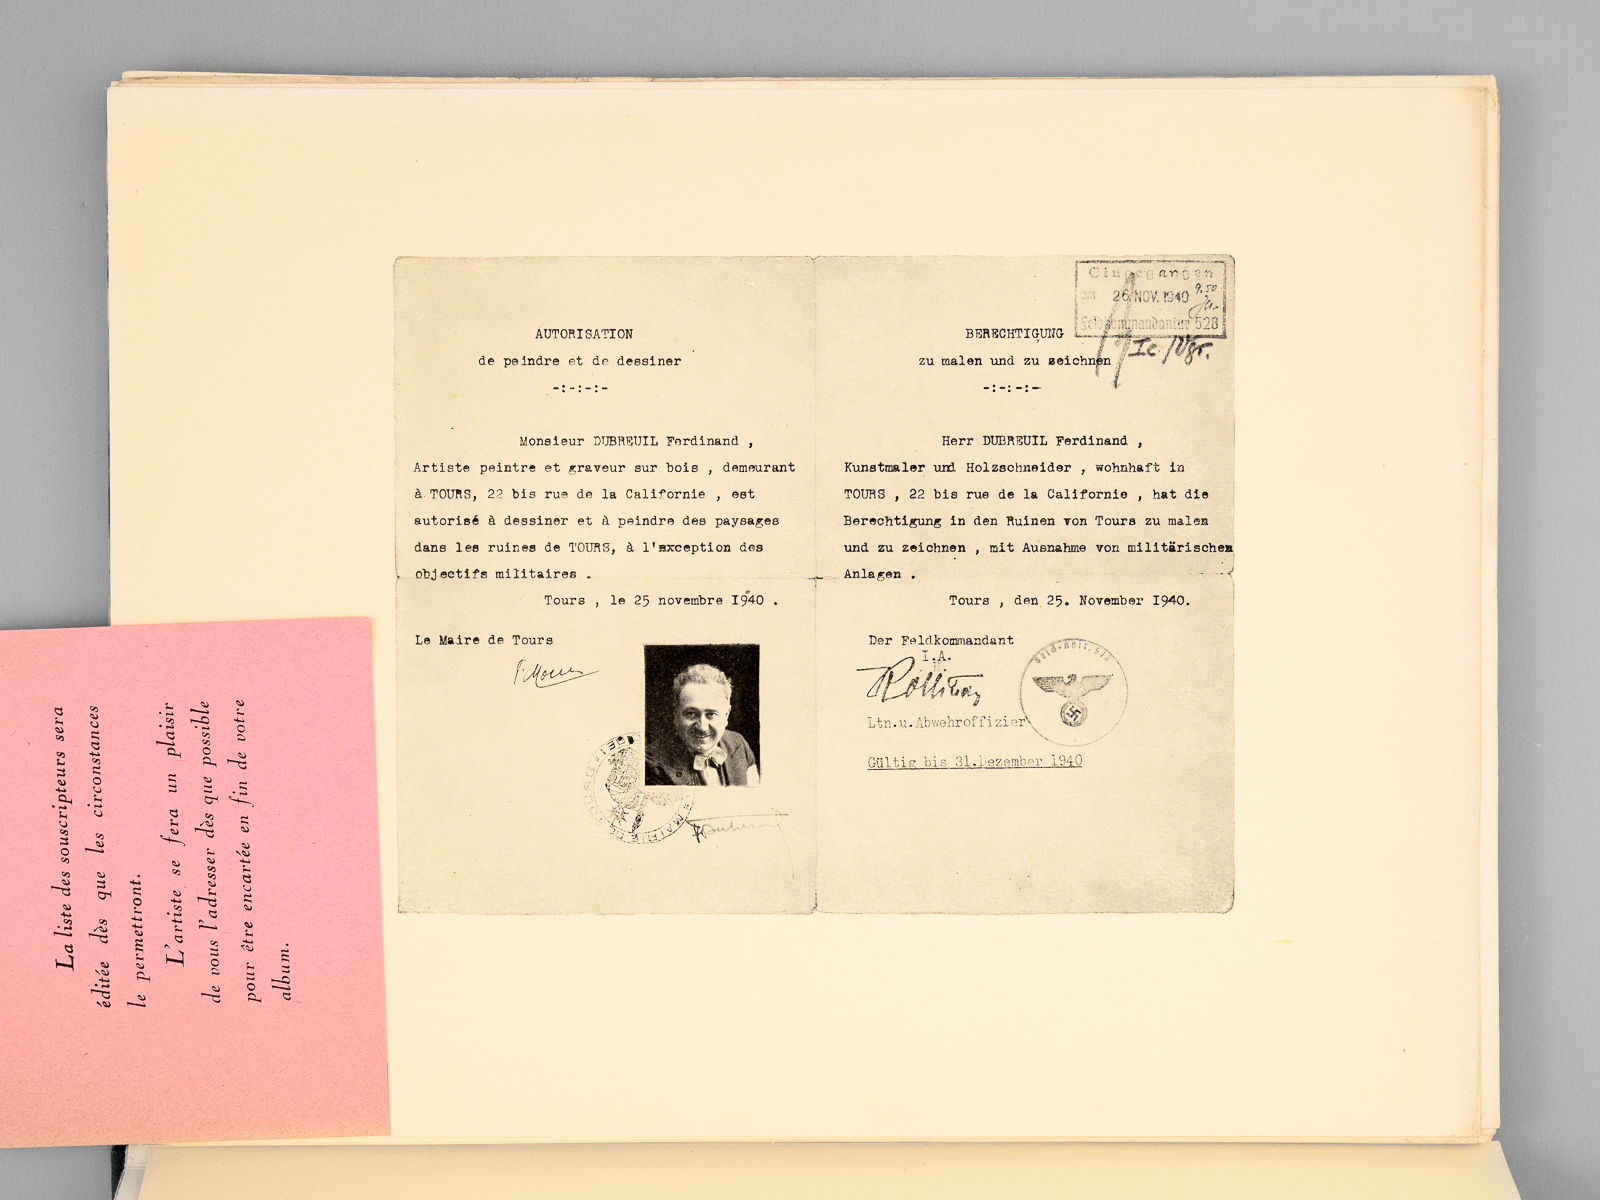 AUTORISATION
de peindre et de dessiner
-:-:-:-
Monsieur DUBREUIL Ferdinand ,
Artiste peintre et graveur sur bois , demeurant
à TOURS, 22 bis rue de la Californie , est
autorisé à dessiner et à peindre des paysages
dans les ruines de TOURS, à l'exception des
objectifs militaires .
Tours , le 25 novembre 1940 .
Le Maire de Tours
MAIRIE DE
Eingegangen
am 26.NOV.1940 9.50
Feldkommandantur 528
Ic./
BERECHTIGUNG
zu malen und zu zeichnen
-:-:-:-
Herr DUBREUIL Ferdinand ,
Kunstmaler und Holzschneider , wohnhaft in
TOURS , 22 bis rue de la Californie , hat die
Berechtigung in den Ruinen von Tours zu malen
und zu zeichnen , mit Ausnahme von militärischen
Anlagen .
Tours , den 25. November 1940.
Der Feldkommandant
I.A.
Ltn.u.Abwehroffizier
Gültig bis 31.Dezember 1940
La liste des souscripteurs sera
éditée dès que les circonstances
le permettront.
L'artiste se fera un plaisir
de vous l'adresser dès que possible
pour être encartée en fin de votre
album.